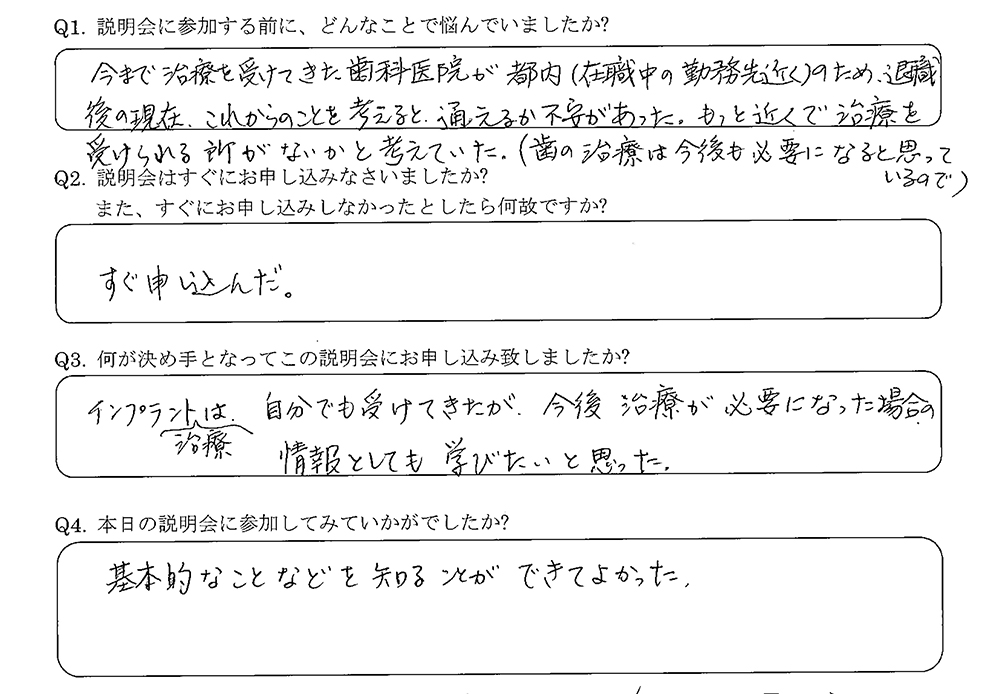 Q1. 説明会に参加する前に、どんなことで悩んでいましたか?
今まで治療を受けてきた歯科医院が都内(在職中の勤務先近く)のため、退職
後の現在、これからのことを考えると、通えるか不安があった。もっと近くで治療を
受けられる所がないかと考えていた。(歯の治療は今後も必要になると思って
いるので)
Q2. 説明会はすぐにお申し込みなさいましたか?
また、すぐにお申し込みしなかったとしたら何故ですか?
すぐ申し込んだ。
Q3. 何が決め手となってこの説明会にお申し込み致しましたか?
インプラント治療は、自分でも受けてきたが、今後治療が必要になった場合の
情報としても学びたいと思った。
Q4. 本日の説明会に参加してみていかがでしたか?
基本的なことなどを知ることができてよかった。